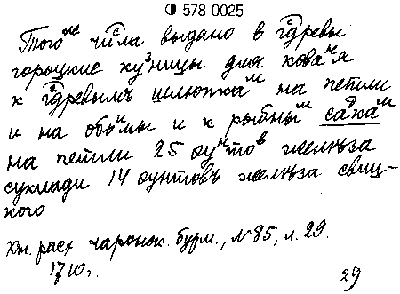 578 0025
Того^ж числа выдано в г^сдревы
городцкие ку^зницы для кова^нья
к г^сдревымъ шлюпка^м на петли
и на обо^имы и к рыбны^м са^дка^м
на петли 25 фу^нто^в железа
суклади 14 фунтовъ железа свиц-
кого
Кн. расх. чаронск. бурм., №85, л. 29.
1710г.
29